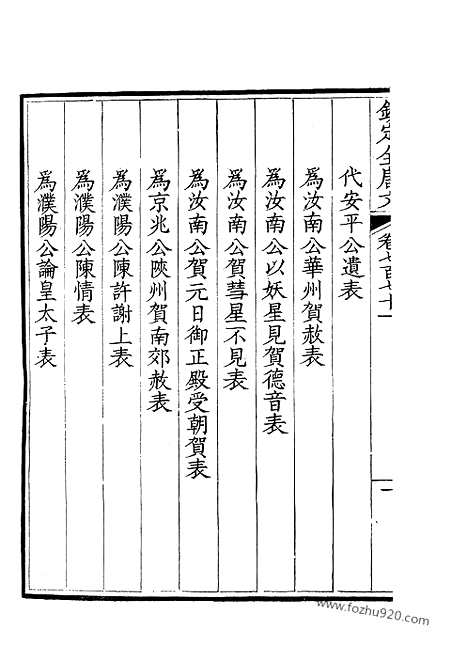 欽定全唐文
卷七百七十一
一
代安平公遺表
為汝南公華州賀赦表
為汝南公以妖星見賀德音表
為汝南公賀彗星不見表
為汝南公賀元日御正殿受朝賀表
為京兆公陝州賀南郊赦表
為濮陽公陳許謝上表
為濮陽公陳情表
為濮陽公論皇太子表
www.fozhu920.com